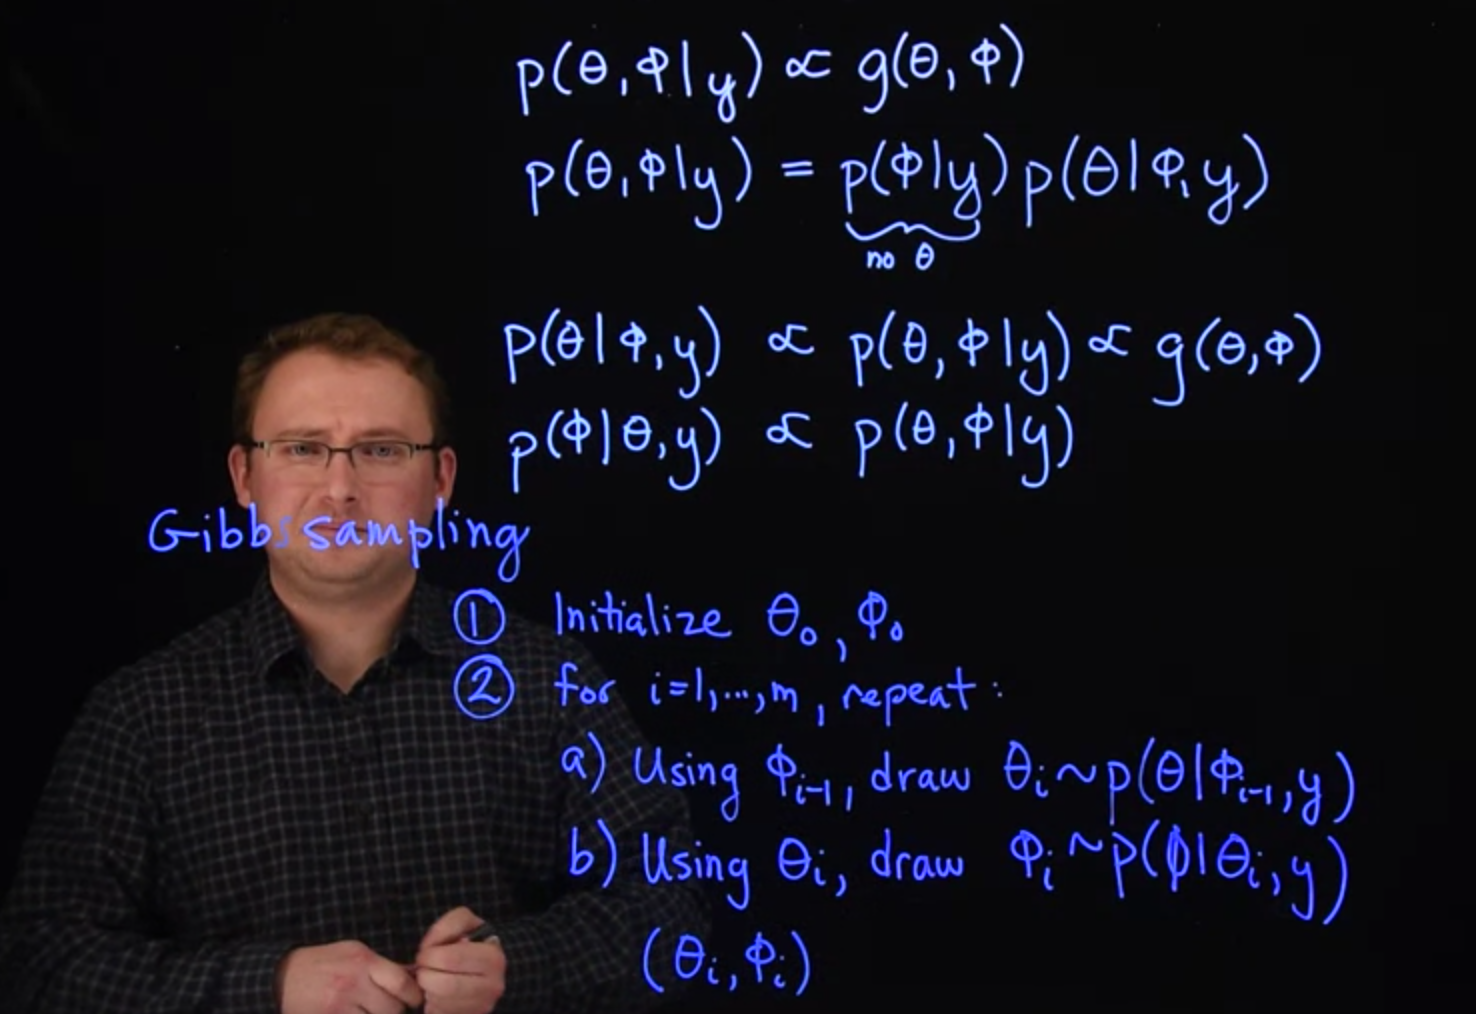 p(θ,φ|y) ∝ g(θ,φ)
p(θ,φ|y) = p(φ|y) p(θ|φ,y)
no θ
p(θ|φ,y) ∝ p(θ,φ|y) ∝ g(θ,φ)
p(φ|θ,y) ∝ p(θ,φ|y)
Gibbs sampling
① Initialize θ₀, φ₀
② for i=1,...,m, repeat:
a) Using φᵢ₋₁, draw θᵢ ~ p(θ|φᵢ₋₁,y)
b) Using θᵢ, draw φᵢ ~ p(φ|θᵢ,y)
(θᵢ,φᵢ)